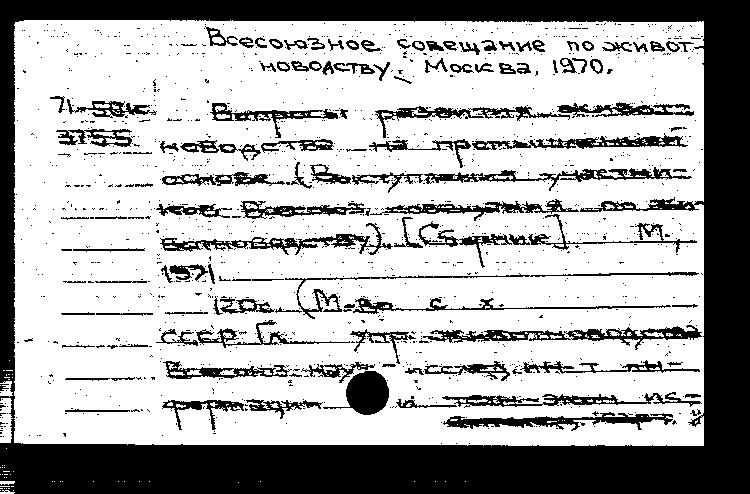 Всесоюзное совещание по живот-
новодству. Москва, 1970.
71-50к Вопросы развития живот-
3755 новодства на промышленной
основе (Выступления участни-
ков Всесоюз. совещания по жи-
вотноводству). [Сборник]. М.,
1971
120с (М-во с. х.
СССР Гл. упр. животноводства
Всесоюз. науч-исслед. ин-т ин-
формации и техн-экон. ис-